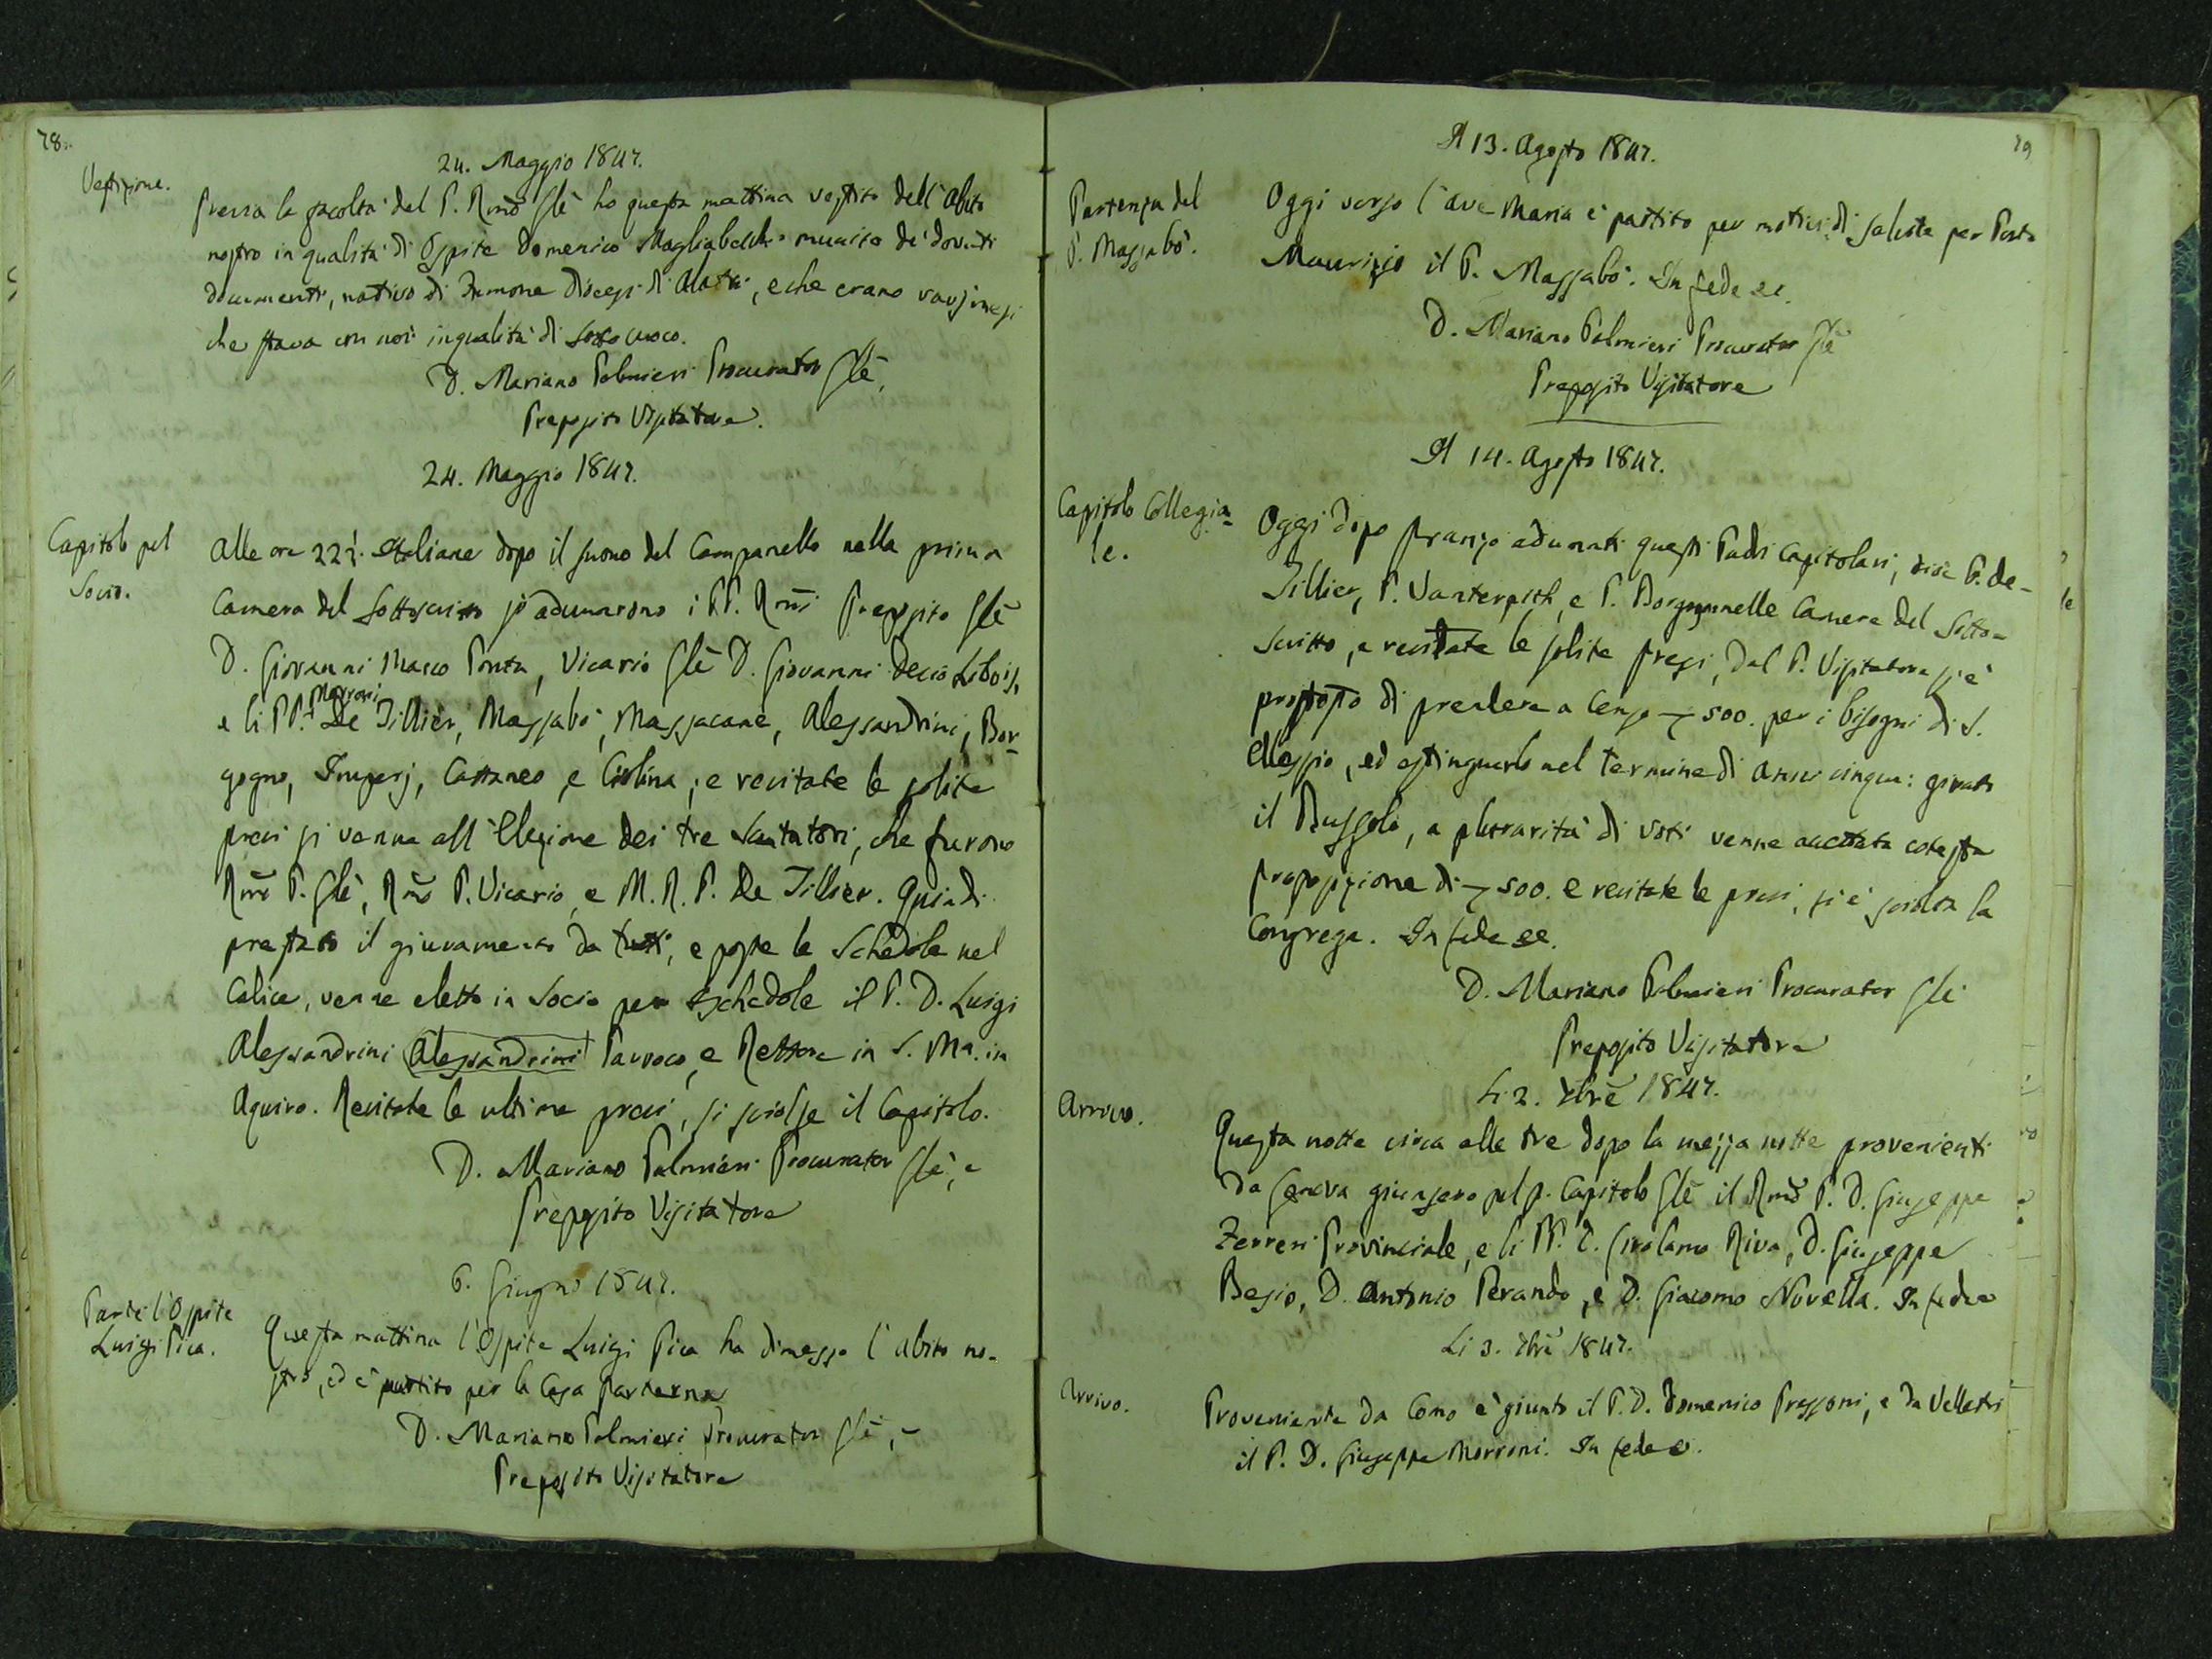 78.
24. Maggio 1847.
Vestizione.
Previa la facoltà del P. Rmo Glê ho questa mattina vestito dell'Abito
nostro in qualità di Ospite Domenico munito de' dovuti
documenti, nativo di Fumone Diocesi di Alatri, e che erano varj mesi
che stava con noi in qualità di Sotto cuoco.
D. Mariano Palmieri Procurator Glê,
Preposito Visitatore.
24. Maggio 1847.
Capitolo pel
Socio.
Alle ore 22½. Italiane dopo il suono del Campanello nella prima
Camera del Sottoscritto si adunarono i PP. Rmi Preposito Glê
D. Giovanni Marco Ponta, Vicario Glê D. Giovanni Decio Libois,
Morroni
e li PP. De Tillier, Massabò, Massacane, Alessandrini, Bor-
gogno, Imperj, Cattaneo, e Ciolina; e recitate le solite
preci si venne all'Elezione dei tre Scutatori, che furono
Rmo P. Glê, Rmo P. Vicario, e M. R. P. De Tillier. Quindi
prestato il giuramento da tutti, e poste le Schedole nel
Calice, venne eletto in Socio per Schedole il P. D. Luigi
Alessandrini Alessandrini Parroco, e Rettore in S. Ma. in
Aquiro. Recitate le ultime preci, si sciolse il Capitolo.
D. Mariano Palmieri Procurator Glê, e
Preposito Visitatore
6. Giugno 1847.
Parte l'Ospite
Luigi Pica.
Questa mattina l'Ospite Luigi Pica ha dimesso l'abito no-
stro, ed è partito per la Casa Parterna
D. Mariano Palmieri Procurator Glê, e
Preposito Visitatore
79
A 13. Agosto 1847.
Partenza del
P. Massabò.
Oggi verso l'ave Maria è partito per motivi di salute per Porto
Maurizio il P. Massabò. In fede ec.
D. Mariano Palmieri Procurator Glê
Preposito Visitatore
A 14. Agosto 1847.
Capitolo Collegia-
le.
Oggi dopo pranzo adunati questi Padri Capitolari, cioè P. de-
Tillier, P. e P. Borgogno nelle Camere del Sotto-
scritto, e recitate le solite preci, dal P. Visitatore s'è
proposto di prendere a Censo 500. per i bisogni di S.
Alessio, ed estinguerlo nel termine di anni cinque: girato
il Bussolo, a plurarità di voti venne accettata cotesta
proposizione di 500. e recitate le preci, si è sciolta la
Congrega. In fede ec.
D. Mariano Palmieri Procurator Glê
Preposito Visitatore
Li 2. 7brê 1847.
Arrivo.
Questa notte circa alle tre dopo la mezza notte provenienti
da Genova giunsero pel p. Capitolo Glê il Rmo P. D. Giuseppe
Ferreri Provinciale, e li PP. D. Girolamo Riva, D. Giuseppe
Besio, D. Antonio Perando, e D. Giacomo Novella. In fede
Li 3. 7brê 1847.
Arrivo.
Proveniente da Como è giunto il P. D. Domenico Pressoni, e da Velletri
il P. D. Giuseppe Morroni. In fede